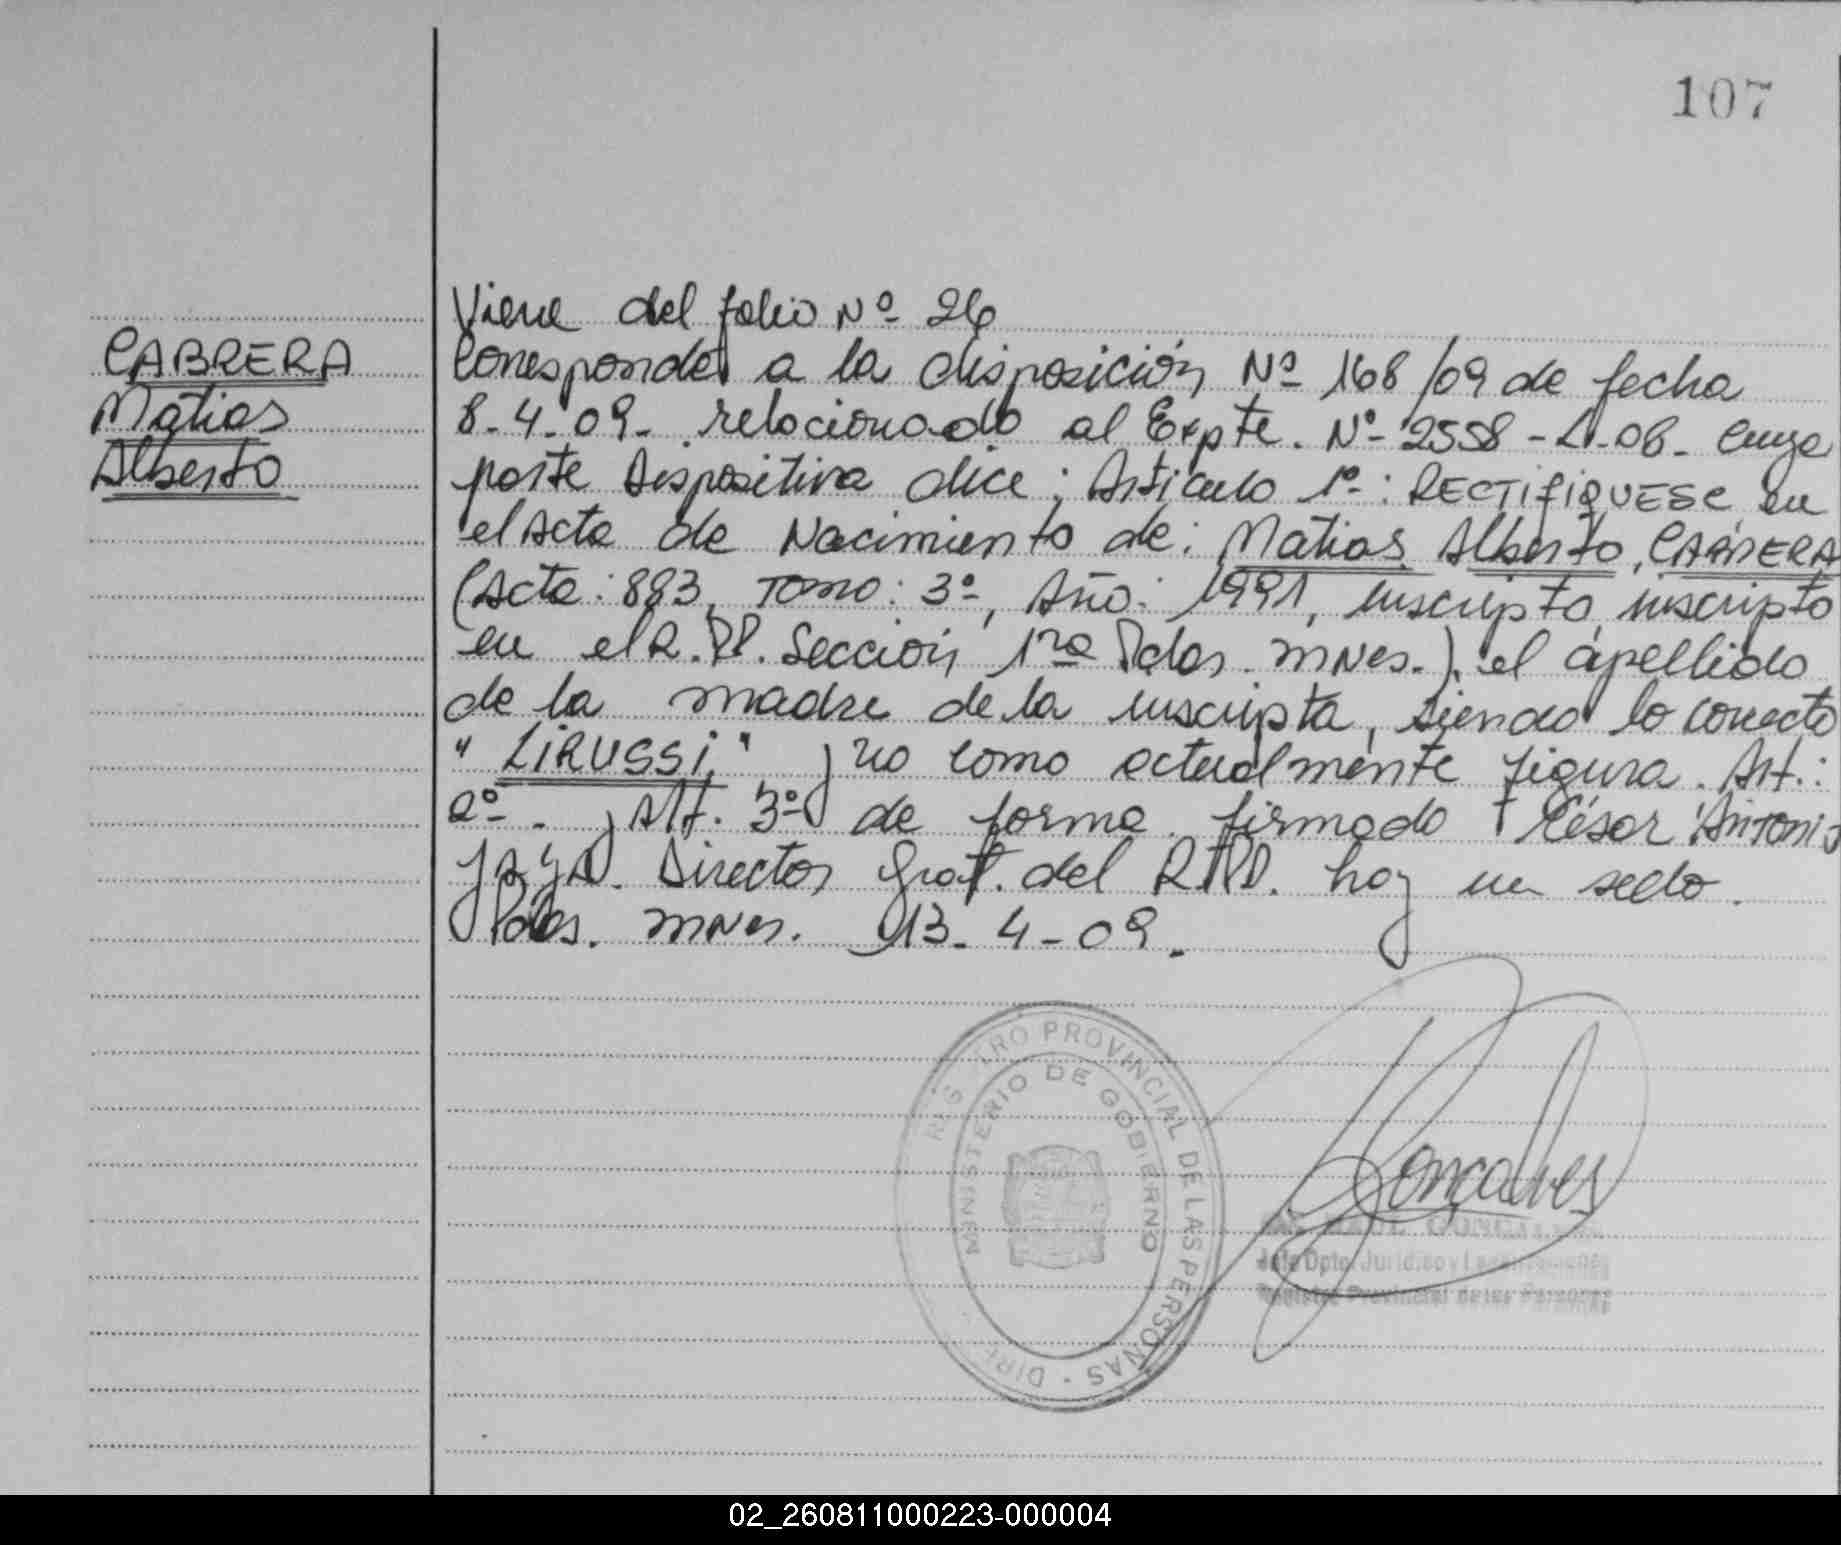 107
Viene del folio Nº 26
CABRERA
Matias
Alberto
Corresponde a la disposición Nº 168/09 de fecha
8-4-09- relacionado al Expte. Nº 2558-L-08- cuya
parte Dispositiva dice; Articulo 1º: RECTIFIQUESE en
el Acta de Nacimiento de: Matias Alberto, CABRERA
(Acta: 883, Tomo: 3º, Año: 1991, inscripto, inscripto
en el R.P.P. Sección 1ra Pdas. Mnes.) el apellido
de la madre de la inscripta, siendo lo correcto
" LiRUSSi " y no como actualmente figura. Art.:
2º-. y Art. 3º de forma. firmado César Antonio
Director Gral. del R.P.P. hay un sello.
Pdas. mnes. 13-4-09.
REGISTRO PROVINCIAL DE LAS PERSONAS - DIRE
MINISTERIO DE GOBIERNO
Goncalves
RAUL GONCALVES
Jefe Dpto. Juridico y
Registro Provincial de las Personas
02_260811000223-000004